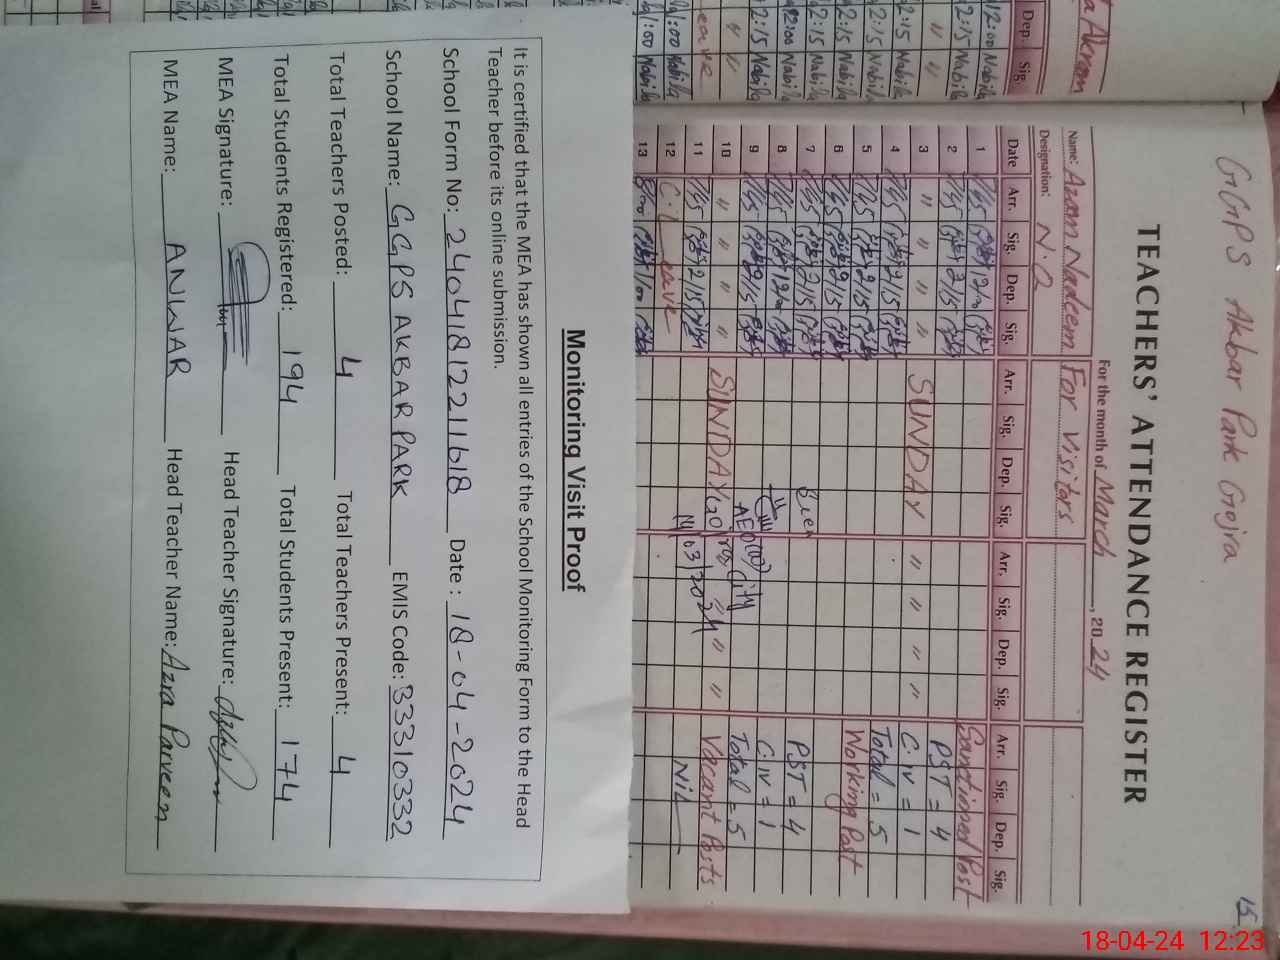 GGPS Akbar Park Gojra
15
TEACHERS' ATTENDANCE REGISTER
For the month of March, 2024
Name: Azam Nadeem For Visitors
Designation: N.Q
Date Arr. Sig. Dep. Sig. Arr. Sig. Dep. Sig. Arr. Sig. Dep. Sig. Arr. Sig. Dep. Sig.
1 7/45 12/00 Sanctioned Post
2 7/45 2/15 PST = 4
3 " " " " SUNDAY " " " " C.IV = 1
4 7/45 2/15 Total = 5
5 7/45 2/15 Working Post
6 7/45 2/15
7 7/45 2/15 Seen PST = 4
8 7/45 12/00 C.IV = 1
9 7/45 2/15 AEO (W) Total = 5
10 " " " " SUNDAY Gojra City " " " Vacant Posts
11 7/45 2/15 14/03/2024 Nil
12 C. Leave
13 8/00 1/00
Akram
Dep. Sig.
12:00 Nabila
2:15 Nabila
" "
2:15 Nabila
2:15 Nabila
2:15 Nabila
2:15 Nabila
12:00 Nabila
2:15 Nabila
" "
Leave
1:00 Nabila
1:00 Nabila
Monitoring Visit Proof
It is certified that the MEA has shown all entries of the School Monitoring Form to the Head
Teacher before its online submission.
School Form No: 240418122111618 Date : 18-04-2024
School Name: GGPS AKBAR PARK EMIS Code: 33310332
Total Teachers Posted: 4 Total Teachers Present: 4
Total Students Registered: 194 Total Students Present: 174
MEA Signature: Head Teacher Signature:
MEA Name: ANWAR Head Teacher Name: Azra Parveen
18-04-24 12:23